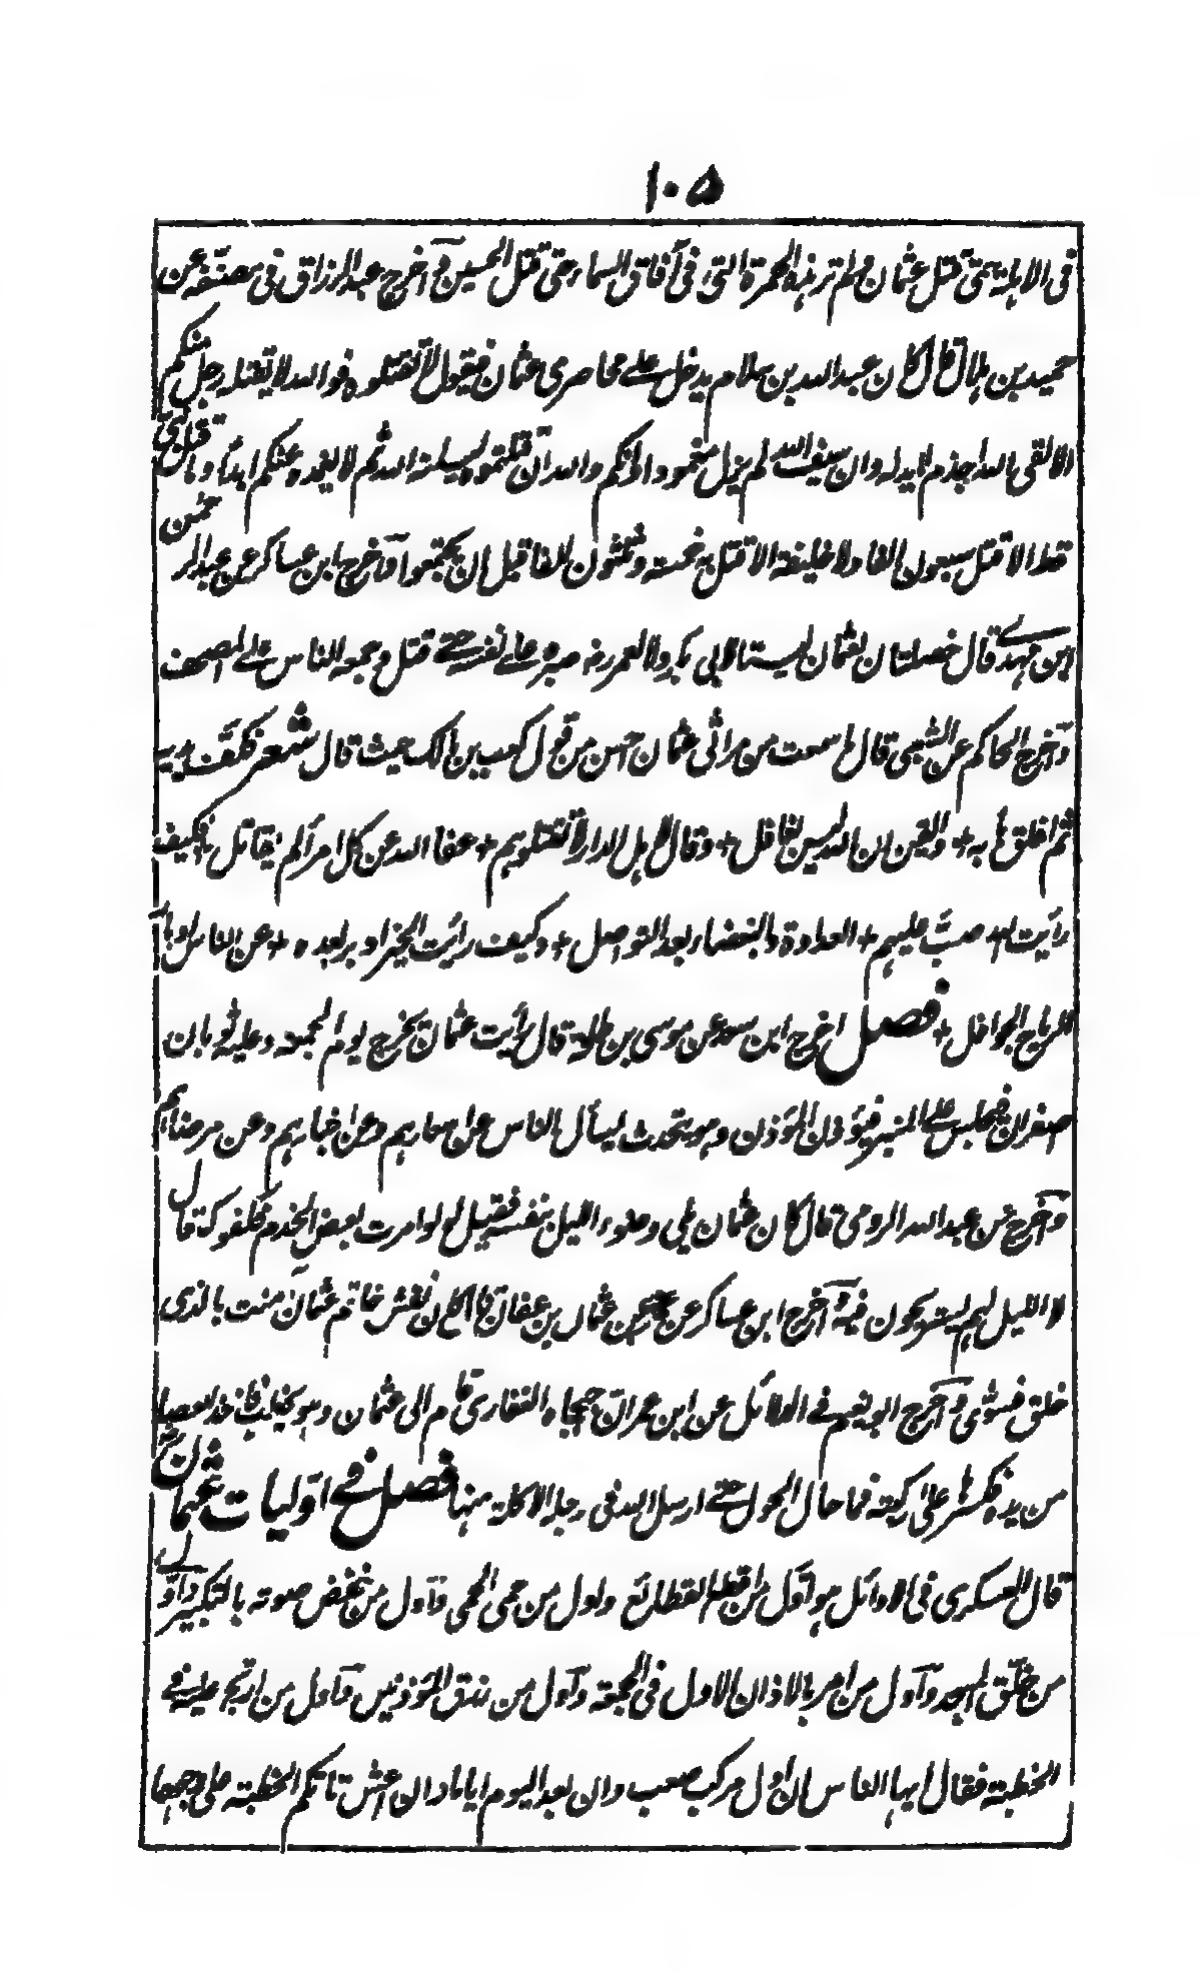 ١٠٥
فى الاهلة حتى قتل عثمان ولم تر هذه الحمرة التى فى آفاق السماء حتى قتل الحسين وآخرج عبد الرزاق فى مصنفه عن
حميد بن هلال قال كان عبد الله بن سلام يدخل على محاصرى عثمان فيقول لا تقتلوه فوالله لا يقتله رجل منكم
الا لقى الله اجذم لا يد له وان سيف الله لم يزل مغمودا وانكم والله ان قتلتموه ليسلنه الله ثم لا يغمده عنكم ابدا وما قتل نبى
قط الا قتل به سبعون الفا ولا خليفة الا قتل به خمسة وثلثون الفا قبل ان يجتمعوا وآخرج ابن عساكر عن عبد الرحمن
ابن مهدى قال خصلتان لعثمان ليستا لابى بكر ولا لعمر رضه صبره على نفسه حتى قتل وجمعه الناس على المصحف
وآخرج الحاكم عن الشعبى قال ما سمعت من مراثى عثمان احسن من قول كعب بن مالك حيث قال شعر فكف يديه
ثم اغلق بابه + وايقن ان الله ليس بغافل + وقال لاهل الدار لا تقتلوهم + عفا الله عن كل امرئ لم يقاتل + فكيف
رأيت الله صب عليهم + العداوة والبغضاء بعد التواصل + وكيف رأيت الخير ادبر بعده + عن الناس ادبار
الرياح الجوافل + فصل اخرج ابن سعد عن موسى بن طلحة قال رأيت عثمان يخرج يوم الجمعه وعليه ثوبان
اصفران فيجلس على المنبر فيؤذن المؤذن وهو يتحدث يسأل الناس عن اسعارهم وعن اخبارهم وعن مرضاهم
وآخرج عن عبد الله الرومى قال كان عثمان يلى وضوء الليل بنفسه فقيل له لو امرت بعض الخدم فكفوك قال
لا الليل لهم يستريحون فيه وآخرج ابن عساكر عن عمرو بن عثمان بن عفان قال كان نقش خاتم عثمان آمنت بالذى
خلق فسوى وآخرج ابو نعيم فى الدلائل عن ابن عمر ان جهجاه الغفارى قام الى عثمان وهو يخطب فاخذ العصا
من يده فكسرها على ركبته فما حال الحول حتى ارسل الله فى رجله الاكلة فمات منها فصل فى اوليات عثمان
قال العسكرى فى الاوائل هو اول من اقطع القطائع واول من حمى الحمى وآول من خفض صوته بالتكبير واول
من خلق المسجد وآول من امر بالاذان الاول فى الجمعة وآول من رزق المؤذنين وآول من ارتج عليه فى
الخطبة فقال ايها الناس ان اول مركب صعب وان بعد اليوم اياما وان اعش تاتكم الخطبة على وجهها